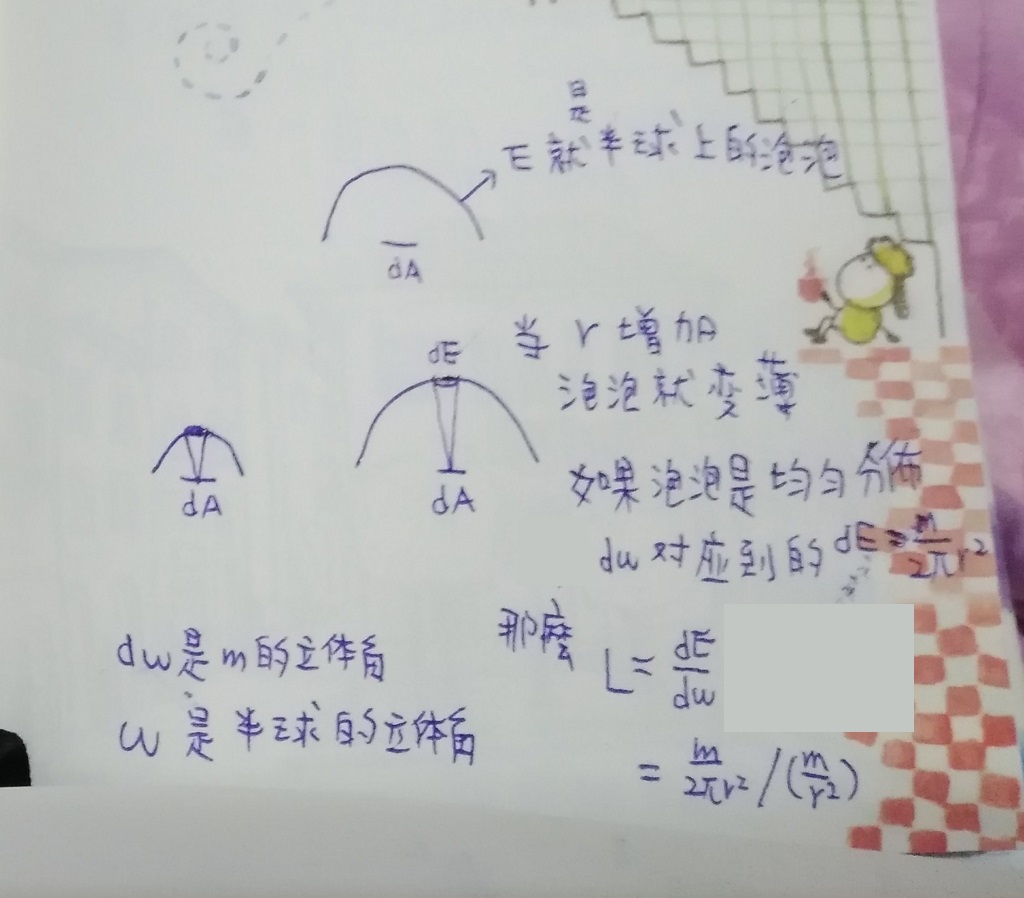 是
E 就半球上的泡泡
dA
当 r 增加
泡泡就变薄
dE
dA
dA
如果泡泡是均匀分佈
dw 对应到的 dE = m/2πr²
那麼 L = dE/dw
= m/2πr² / (m/r²)
dw 是 m 的立体角
w 是半球的立体角